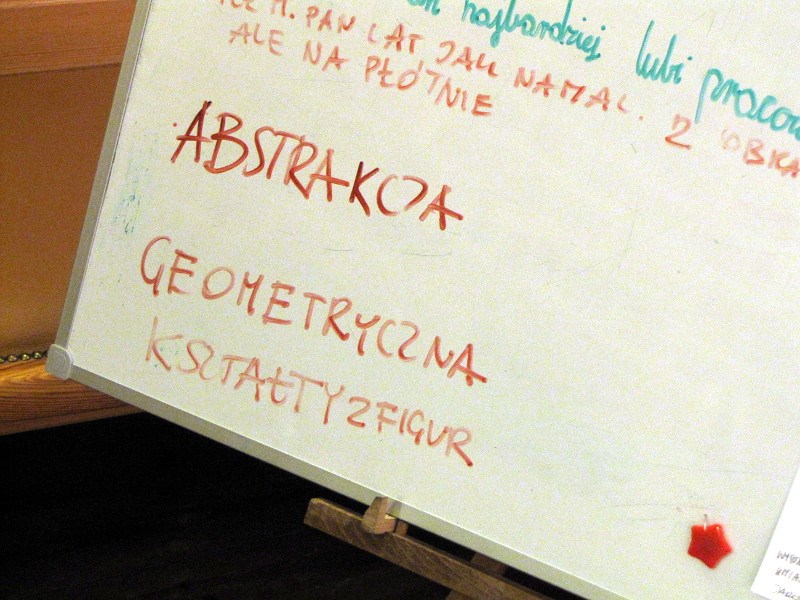 najbardziej lubi
M. PAN LAT JAK NAMAL. 2
ALE NA PŁÓTNIE
ABSTRAKCJA
GEOMETRYCZNA
KSZTAŁTY Z FIGUR